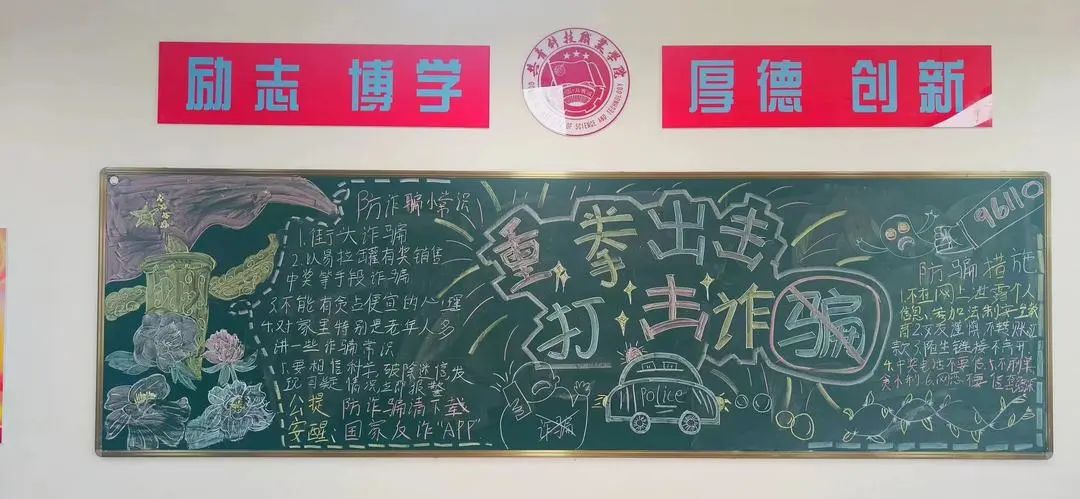 励志 博学
共青科技职业学院
OF SCIENCE AND TECHNOLOGY
厚德 创新
防诈骗小常识
1.街大诈骗
2.以易拉罐有奖销售
中奖等手段诈骗
3.不能有贪占便宜的心理
4.对家里特别是老年人多
讲一些诈骗常识
5.要相信科学破除迷信发
现可疑情况立即报警
公提 防诈骗请下载
安醒:国家反诈"APP"
重拳出击
打击诈骗
诈骗
Police
96110
防骗措施
1.不在网上泄露个人
信息、参加法制安全教
育2.交友谨慎不转账汇
款3.陌生链接不要开
4.中奖